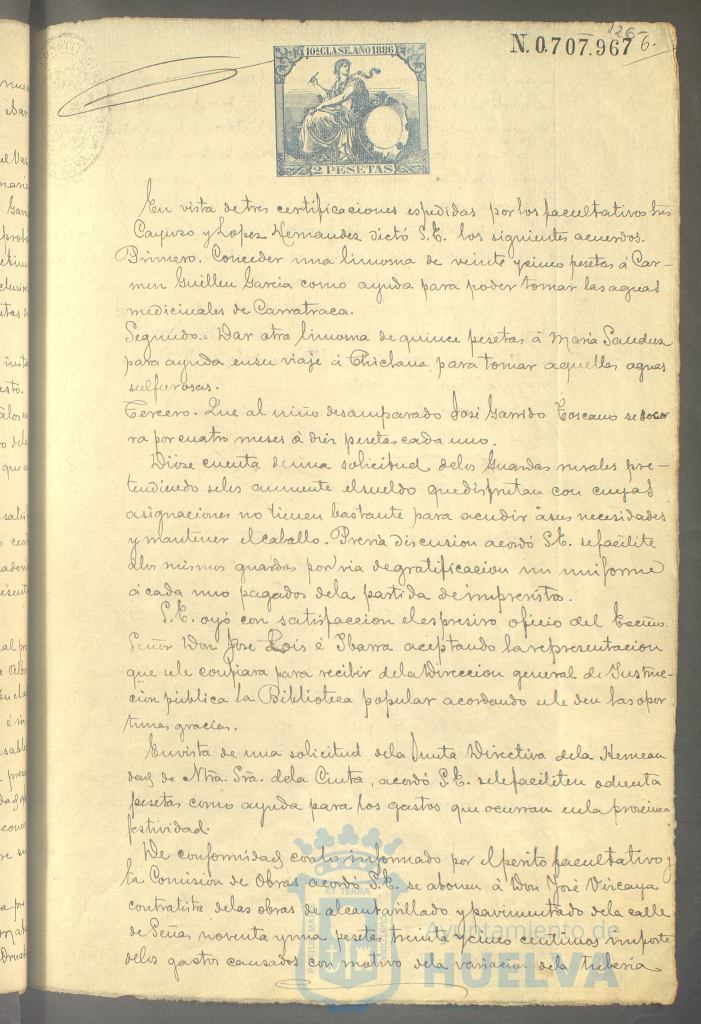 126
N. 0.707.967 6.
10ª CLASE. AÑO 1886
2 PESETAS
En vista de tres certificaciones espedidas por los facultativos Sres
Cayuso y Lopez Hernandez dictó S.E. los siguientes acuerdos.
Primero. Conceder una limosna de veinte y cinco pesetas á Car-
men Guillen Garcia como ayuda para poder tomar las aguas
medicinales de Carratraca.
Segundo.= Dar otra limosna de quince pesetas á Maria
para ayuda en su viaje á Chiclana para tomar aquellas aguas
sulfurosas.
Tercero. Que al niño desamparado José Garrido Toscano se socor
ra por cuatro meses á diez pesetas cada uno.
Dióse cuenta de una solicitud de los Guardas rurales pre-
tendiendo se les aumente el sueldo que disfrutan con cuyas
asignaciones no tienen bastante para acudir á sus necesidades
y mantener el caballo. Prévia discusion acordó S.E. se facilite
á los mismos guardas por via de gratificacion un uniforme
á cada uno pagados de la partida de imprevistos.
S.E. oyó con satisfaccion el espresivo oficio del Excmo.
Señor Don José Lois é Ibarra aceptando la representacion
que se le confiara para recibir de la Direccion general de Instruc-
cion pública la Biblioteca popular acordando se le den las opor
tunas gracias.
En vista de una solicitud de la Junta Directiva de la Herman
dad de Ntra. Sra. de la Cinta, acordó S.E. se le faciliten ochenta
pesetas como ayuda para los gastos que ocurran en la proxima
festividad.
De conformidad con lo informado por el perito facultativo y
la Comision de Obras acordó S.E. se abonen á Don José Vizcaya
contratista de las obras de alcantarillado y pavimentado de la calle
de Señas noventa y una pesetas treinta y cinco centimos importe
de los gastos causados con motivo de la variacion de la tuberia
Ayuntamiento de
HUELVA